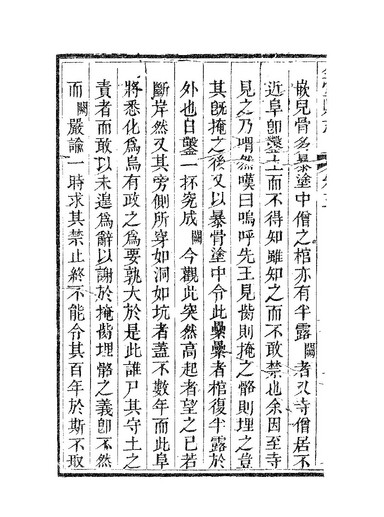 嵌兒骨多暴塗中僧之棺亦有半露闕者以寺僧居不
近阜卽鑿土而不得知雖知之而不敢禁也余因至寺
見之乃喟然嘆曰嗚呼先王見胔則掩之骼則埋之豈
其旣掩之後又以暴骨塗中令此纍纍者棺復半露於
外也日鑿一抔完成闕今觀此突然高起者望之已若
斷岸然又其旁側所穿如洞如坑者蓋不數年而此阜
將悉化爲烏有政之爲要孰大於是此誰尸其守土之
責者而敢以未遑爲辭以謝於掩胔埋骼之義卽不然
而闕嚴諭一時求其禁止終不能令其百年於斯不取